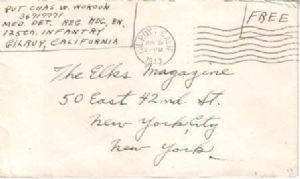 PVT. CHAS. W. MOROUN
36717771
MED. DET. REG. HDQ. BN.
125th. INFANTRY
GILROY, CALIFORNIA
FREE
GILROY, CALIF.
PM
1943
The Elks Magazine
50 East 42nd St.
New York, City
New York